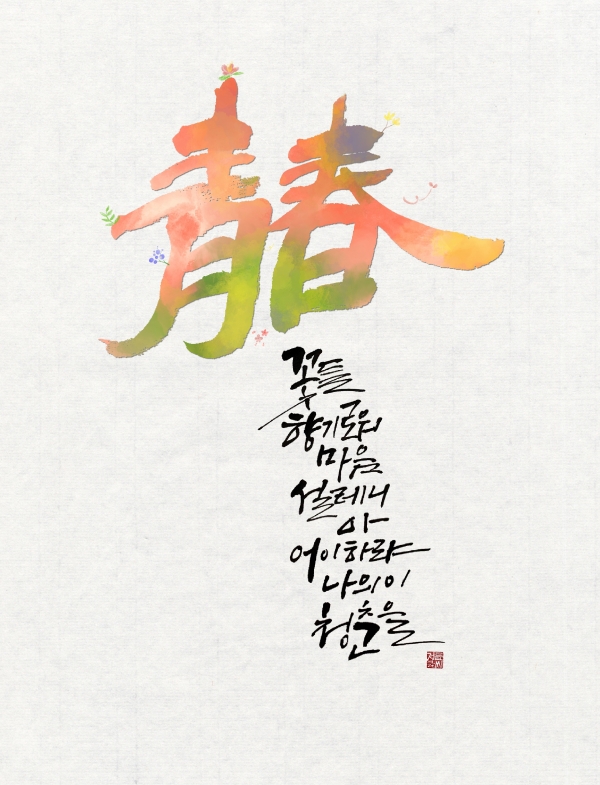 青春
꽃들
향기로워
마음
설레니
아
어이하랴
나의 이
청춘을